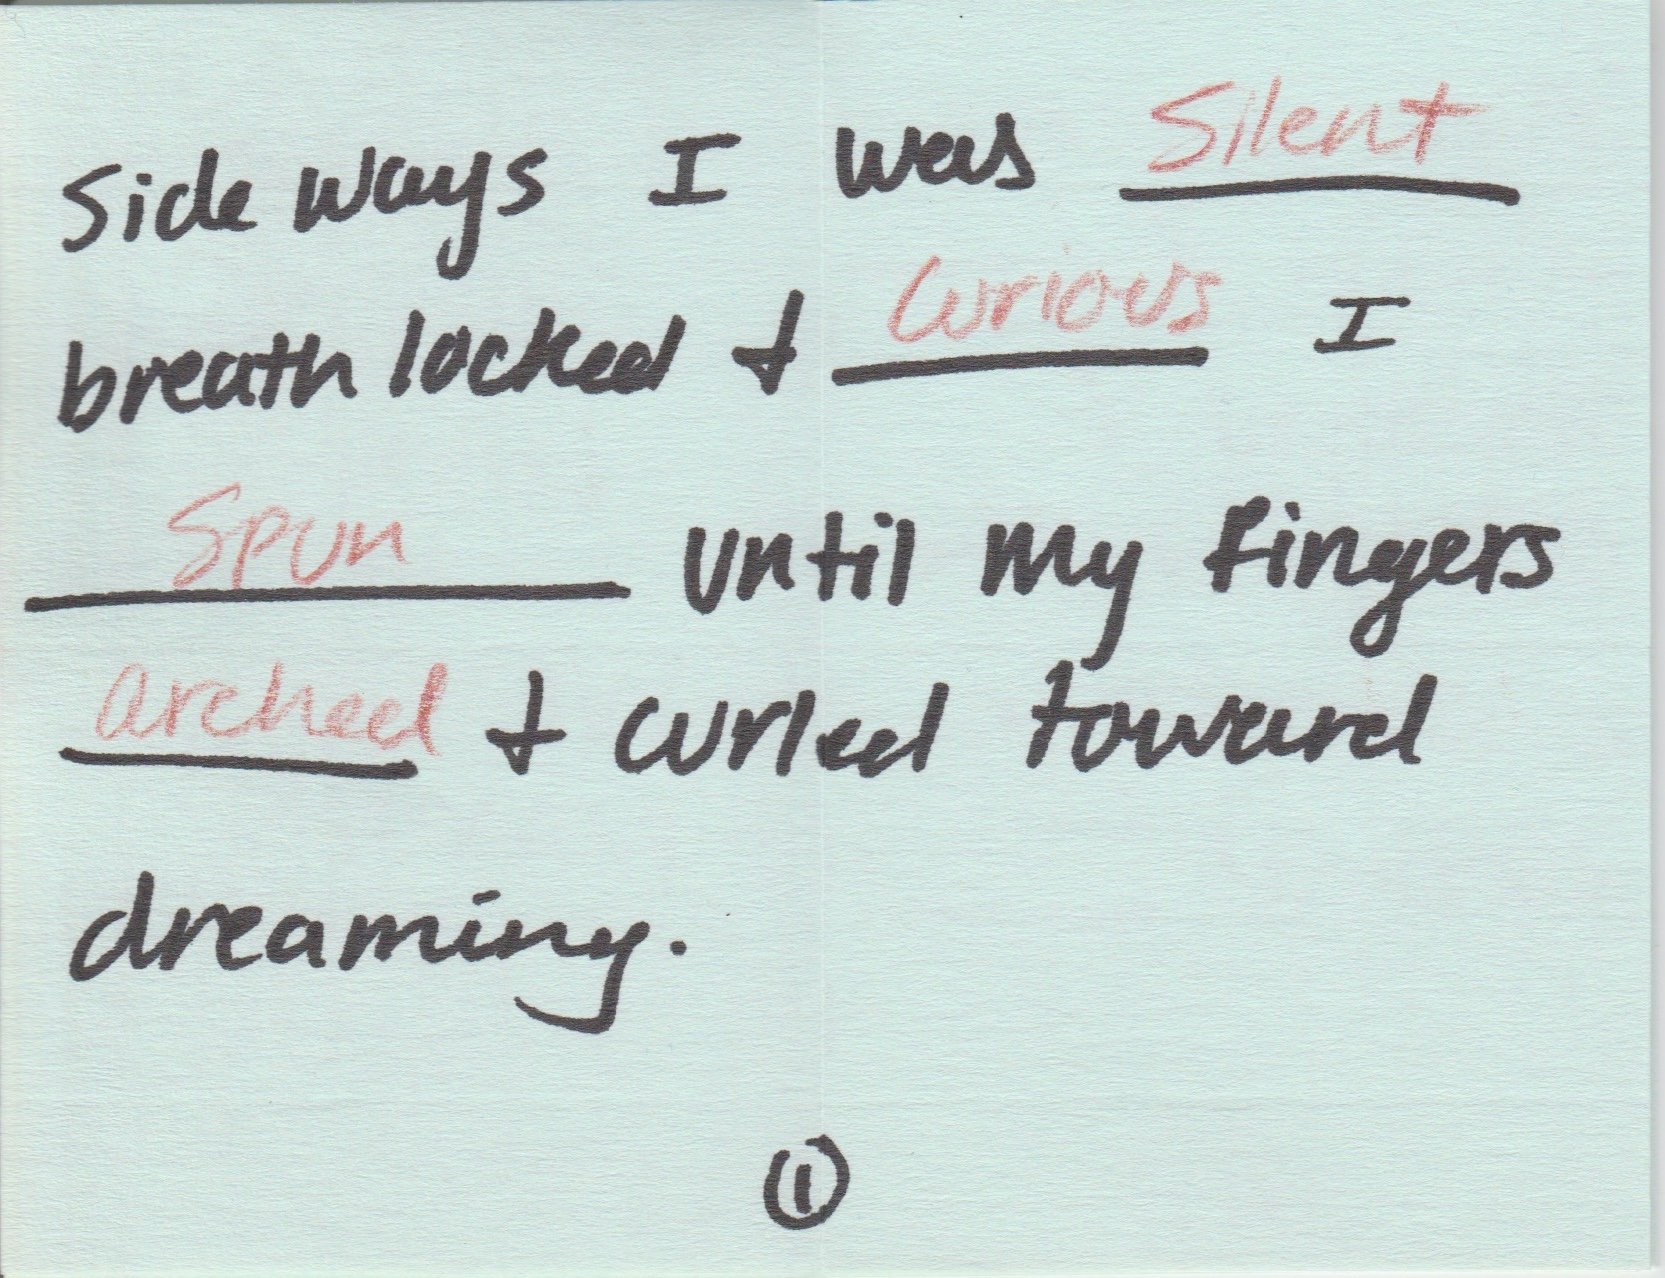 Sideways I was Silent
breath locked + Curious I
Spun until my fingers
arched + curled toward
dreaming.
1